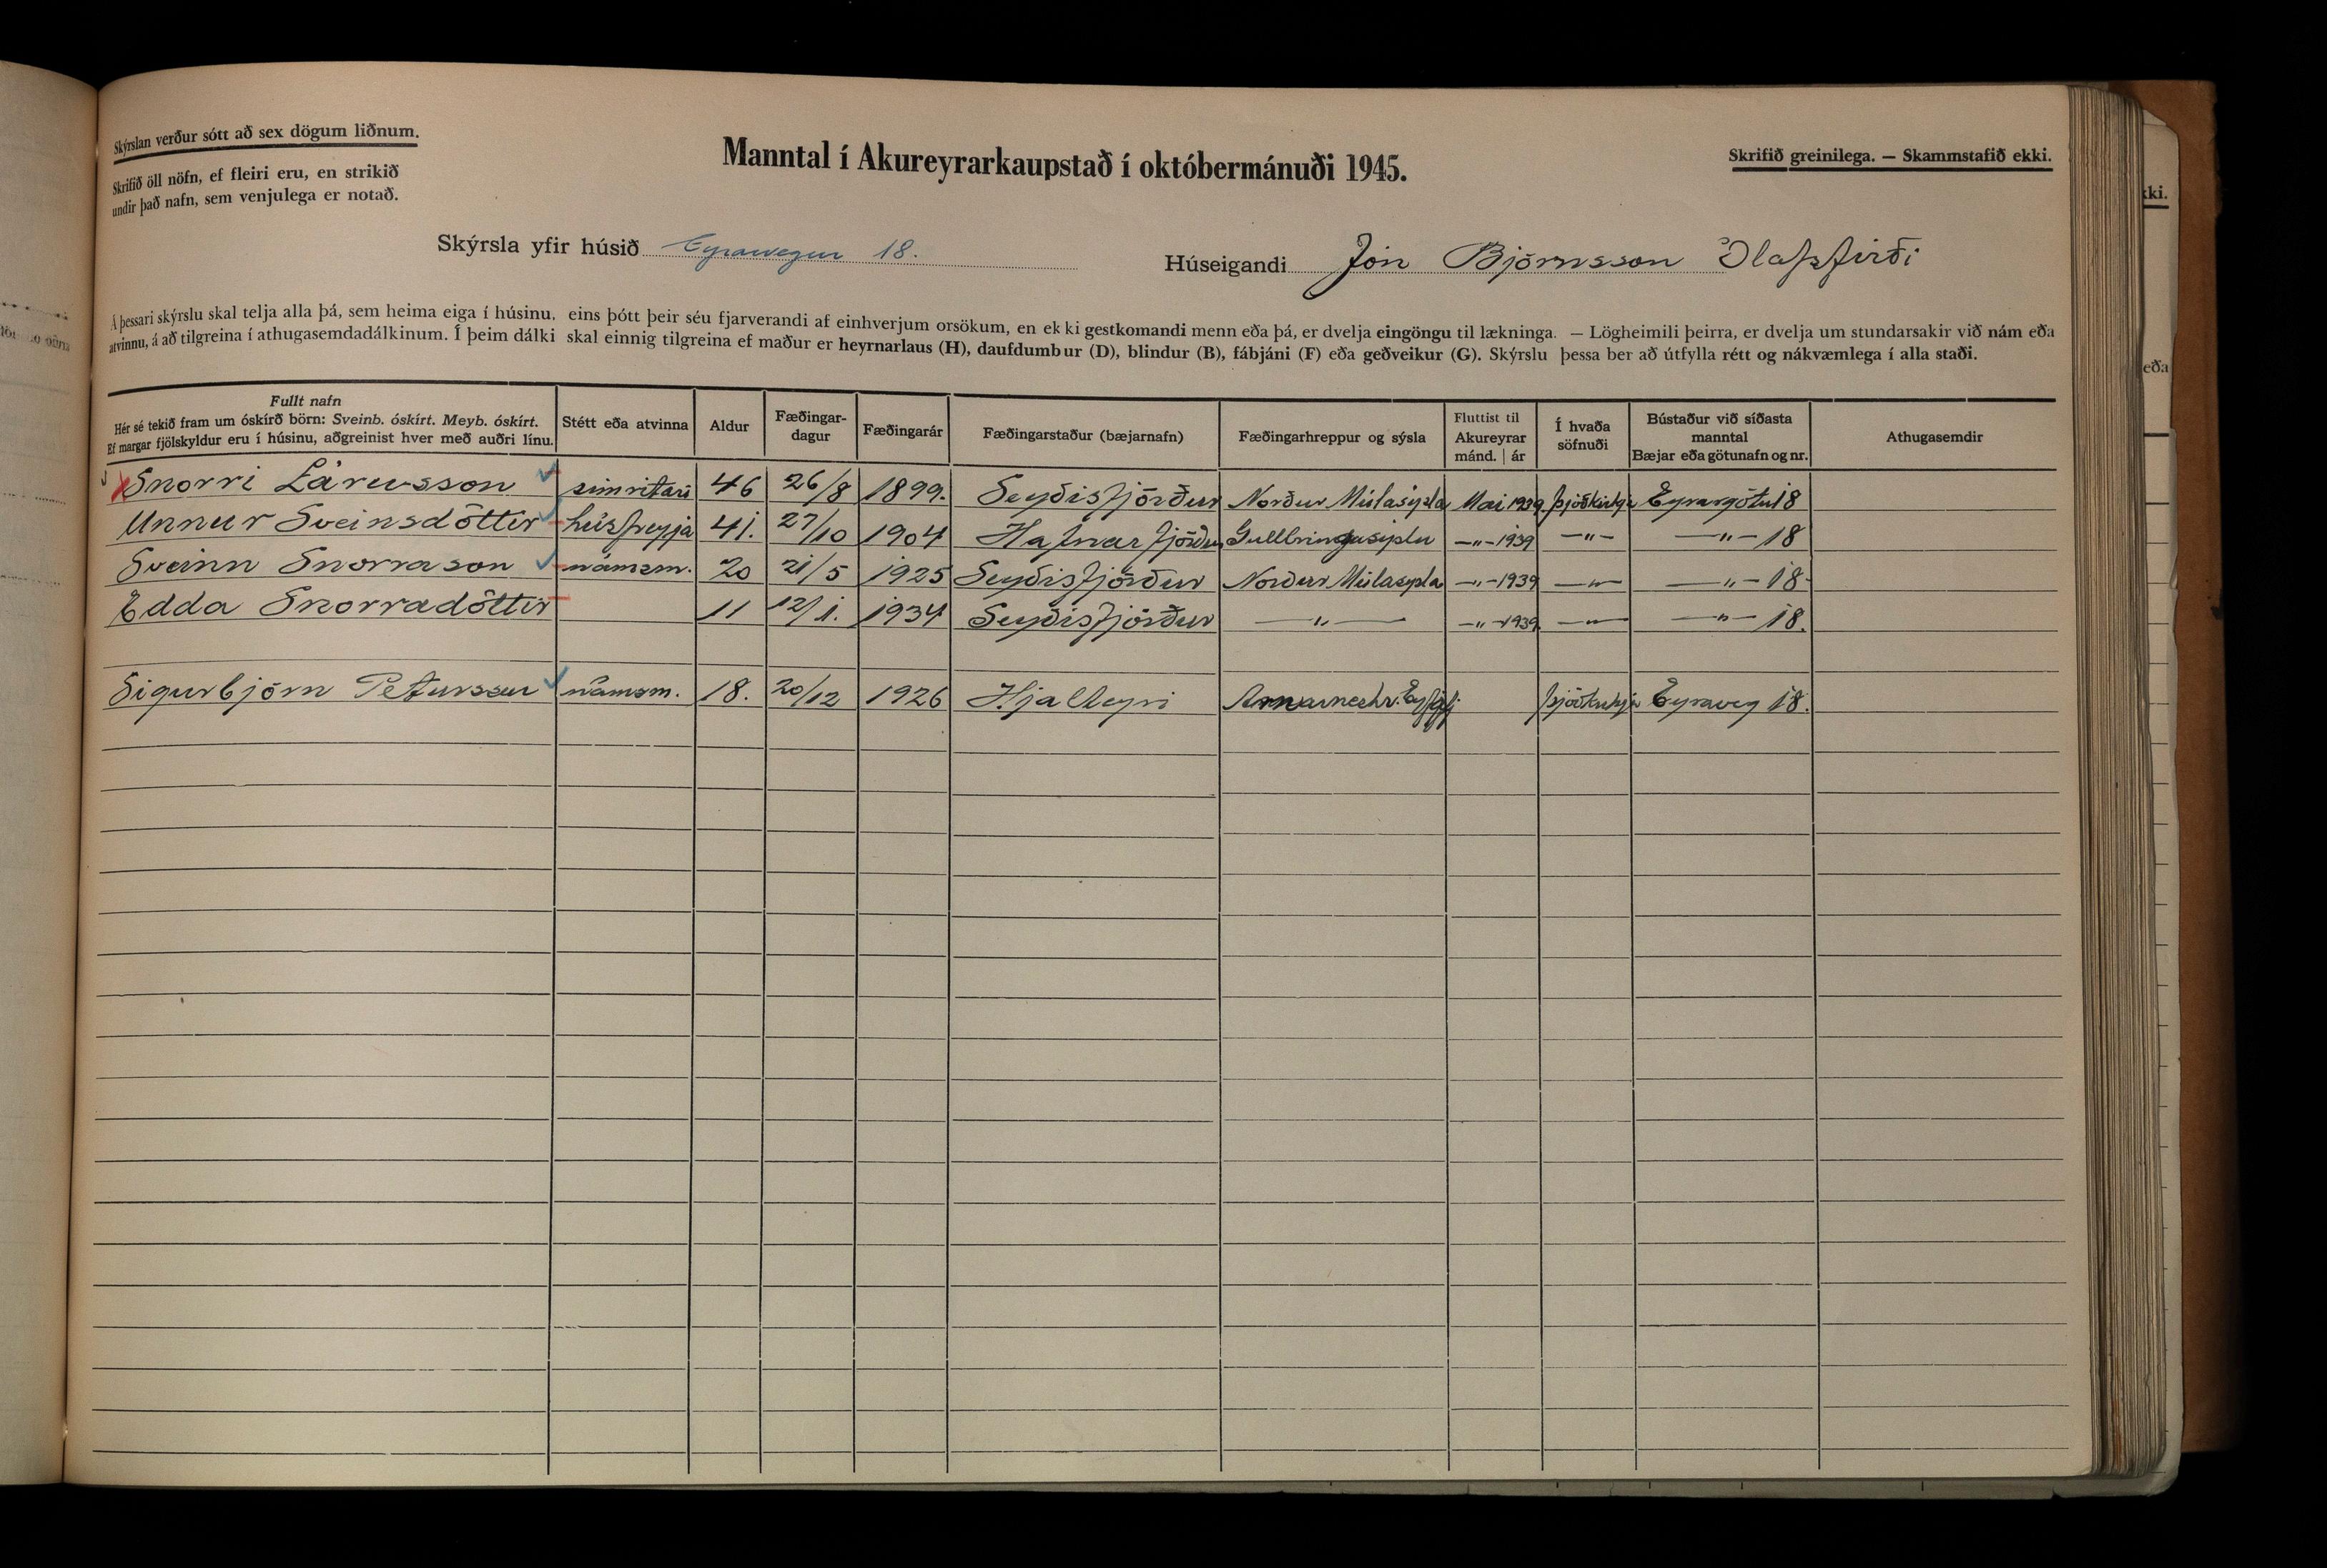 Skýrslan verður sótt að sex dögum liðnum.
Skrifið öll nöfn, ef fleiri eru, en strikið
undir það nafn, sem venjulega er notað.
Manntal í Akureyrarkaupstað í októbermánuði 1945.
Skrifið greinilega. — Skammstafið ekki.
Skýrsla yfir húsið Eyrarvegur 18.
Húseigandi Jón Björnsson Ólafsfirði
Á þessari skýrslu skal telja alla þá, sem heima eiga í húsinu, eins þótt þeir séu fjarverandi af einhverjum orsökum, en ekki gestkomandi menn eða þá, er dvelja eingöngu til lækninga. — Lögheimili þeirra, er dvelja um stundarsakir við nám eða
atvinnu, á að tilgreina í athugasemdadálkinum. Í þeim dálki skal einnig tilgreina ef maður er heyrnarlaus (H), daufdumbur (D), blindur (B), fábjáni (F) eða geðveikur (G). Skýrslu þessa ber að útfylla rétt og nákvæmlega í alla staði.
Fullt nafn
Hér sé tekið fram um óskírð börn: Sveinb. óskírt. Meyb. óskírt.
Ef margar fjölskyldur eru í húsinu, aðgreinist hver með auðri línu.
Stétt eða atvinna
Aldur
Fæðingar-
dagur
Fæðingarár
Fæðingarstaður (bæjarnafn)
Fæðingarhreppur og sýsla
Fluttist til
Akureyrar
mánd. | ár
Í hvaða
söfnuði
Bústaður við síðasta
manntal
Bæjar eða götunafn og nr.
Athugasemdir
Snorri Lárusson símritari 46 26/8 1899. Seyðisfjörður Norður Múlasýsla Maí 1939 Þjóðkirkja Eyrargötu 18
Unnur Sveinsdóttir húsfreyja 41. 27/10 1904 Hafnarfjörður Gullbringusýslu —〃— 1939 —〃— —〃— 18
Sveinn Snorrason námsm. 20 21/5 1925 Seyðisfjörður Norður Múlasýsla —〃— 1939 —〃— —〃— 18.
Edda Snorradóttir 11 12/1. 1934 Seyðisfjörður —〃— —〃— 1939 —〃— —〃— 18.
Sigurbjörn Pétursson námsm. 18. 20/12 1926 Hjalteyri Arnarneshr. Eyjafj. Þjóðkirkja Eyraveg 18.
ki.
eða